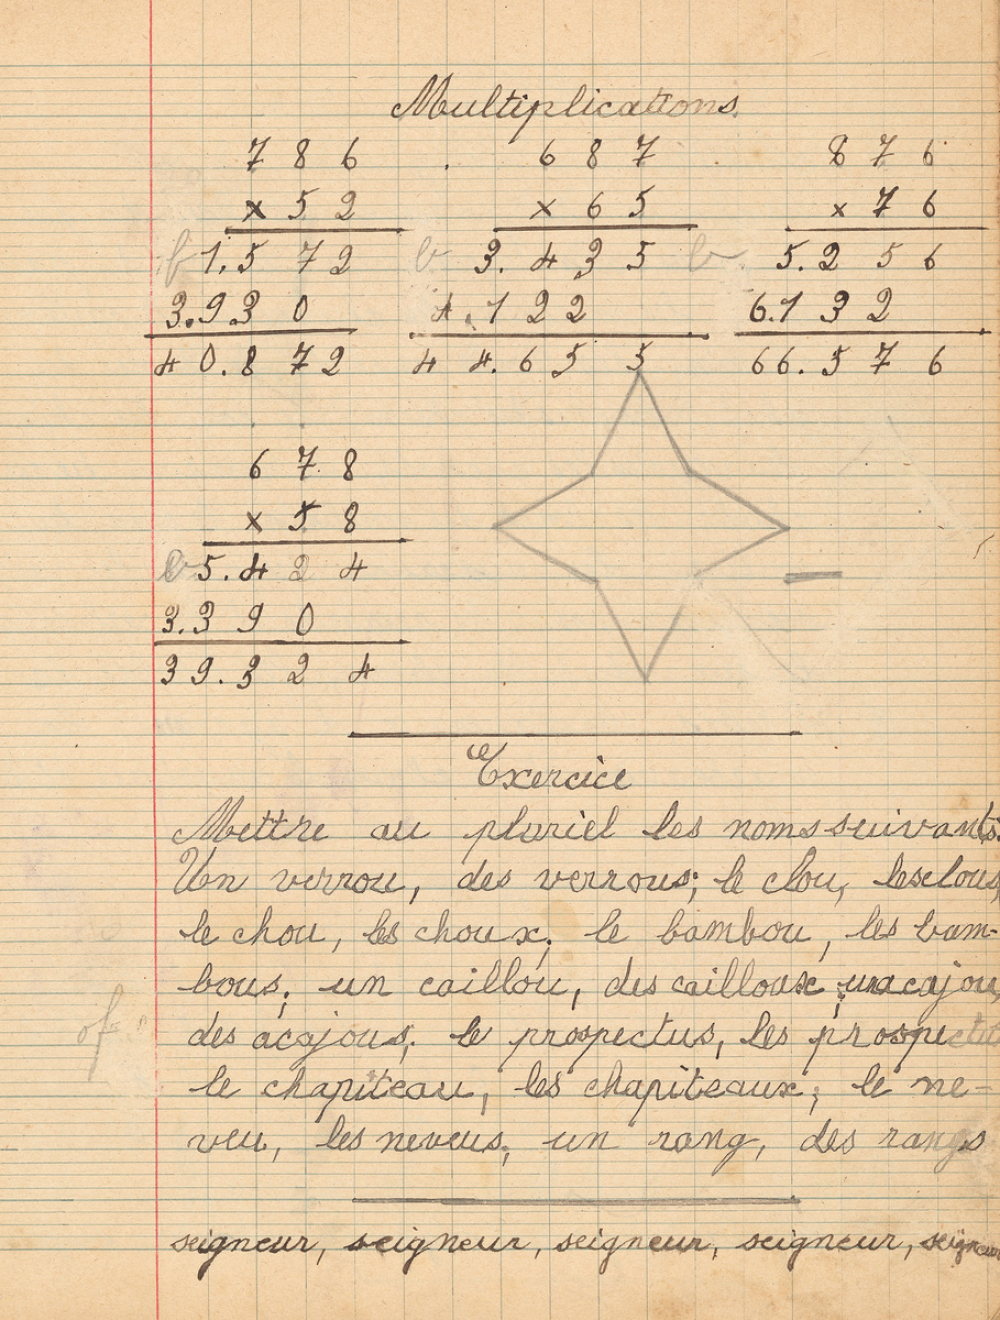 Multiplications.
7 8 6 6 8 7 8 7 6
x 5 2 x 6 5 x 7 6
b 1.5 7 2 b 3.4 3 5 b 5.2 5 6
3.9 3 0 4.1 2 2 6.1 3 2
4 0.8 7 2 4 4.6 5 5 6 6.5 7 6
6 7 8
x 5 8
b 5.4 2 4
3.3 9 0
3 9.3 2 4
Exercice
Mettre au pluriel les noms suivants.
Un verrou, des verrous; le clou, les clous,
le chou, les choux; le bambou, les bam-
bous; un caillou, des cailloux; un acajou,
des acajous; le prospectus, les prospectus
le chapiteau, les chapiteaux; le ne-
veu, les neveus; un rang, des rangs
seigneur, seigneur, seigneur, seigneur, seigneur